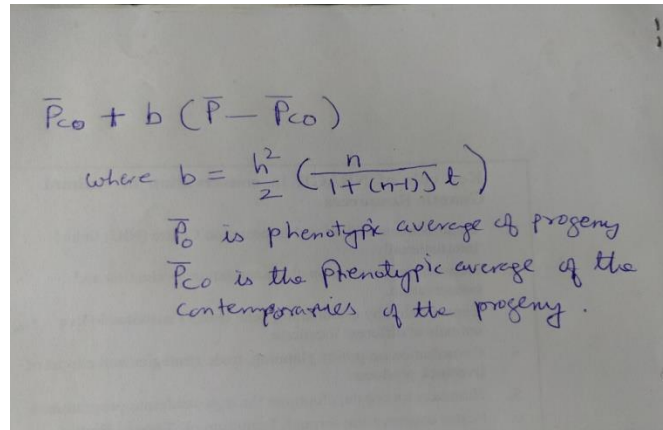 P̅co + b (P̅ – P̅co)
where b = h²/2 (n / 1 + (n-1)} t)
P̅o is phenotypic average of progeny
P̅co is the phenotypic average of the
contemporaries of the progeny.